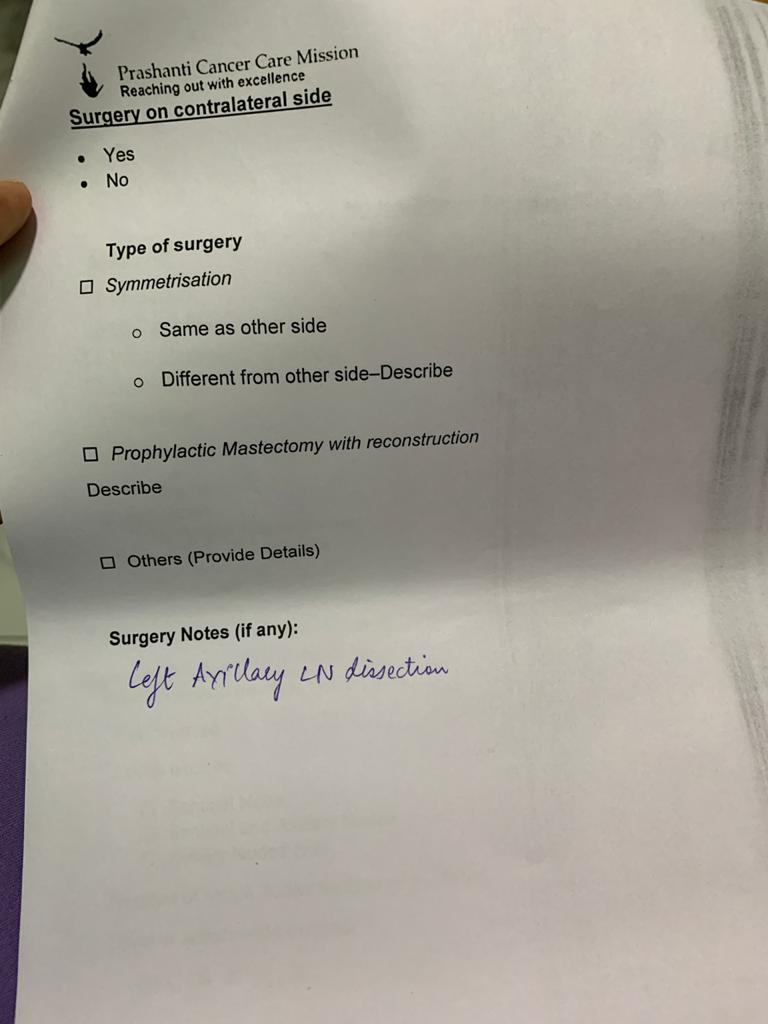 Prashanti Cancer Care Mission
Reaching out with excellence
Surgery on contralateral side
• Yes
• No
Type of surgery
☐ Symmetrisation
o Same as other side
o Different from other side–Describe
☐ Prophylactic Mastectomy with reconstruction
Describe
☐ Others (Provide Details)
Surgery Notes (if any):
Left Axillary LN dissection